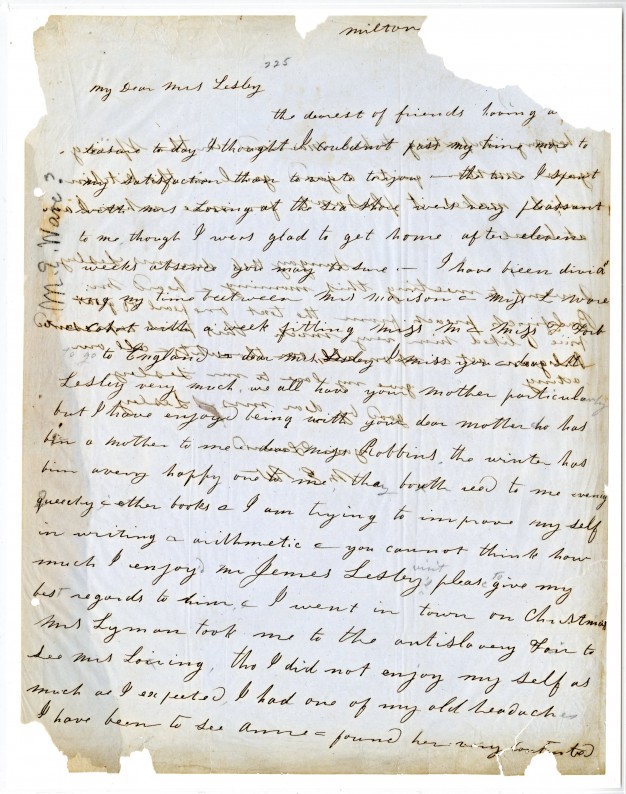 milton
225
My Dear Mrs Lesley
the dearest of friends having a
leasure to day I thought I couldnot pass my time more to
my satisfaction than to write to you - the time I spent
with mrs Loring at the Sea Shore wers very pleasant
to me, though I wers glad to get home after eleven
weeks absence you may be sure - I have been divid
ing my time between Mrs morison & miss L Ware
& Cabot with a week fitting miss M & miss F Forb
to go to England - dear mrs Lesley I miss you & dear Mr
Lesley very much, we all have your mother particularly
but I have enjoyd being with your dear mother ho has
bin a mother to me & dear miss Robbins, the winter has
bin avery happy one to me, they bouth read to me evening
queechy & other books & I am trying to improve my self
in writing & arithmetic & you cannot think how
much I enjoyd mr Jemes Lesley visit pleas to give my
best regards to him, & I went in town on Christmas
Mrs Lyman took me to the antislavery Fair to
see mrs Loiring, tho I did not enjoy my self as
much as I expected, I had one of my old headachs
I have been to see Anne & found her very contented
M. E. Ware?